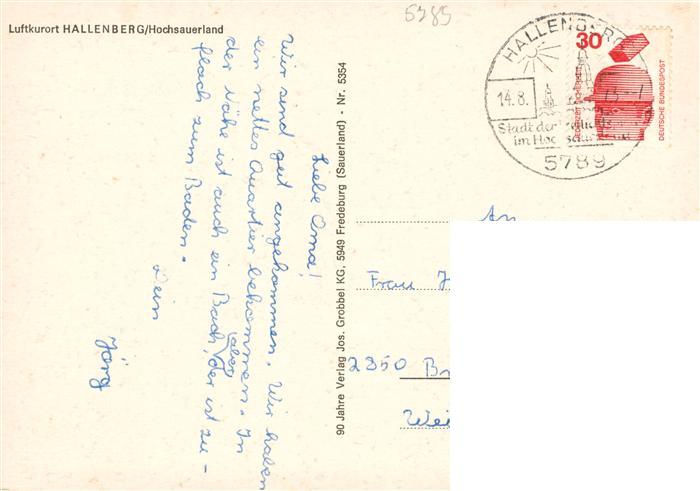 5789
Luftkurort HALLENBERG/Hochsauerland
Liebe Oma!
Wir sind gut angekommen. Wir haben
ein nettes Quartier bekommen. In
der Nähe ist auch ein Bach, der ist zu-
aber
flach zum Baden.
Dein
Jörg
90 Jahre Verlag Jos. Grobbel KG, 5949 Fredeburg (Sauerland) - Nr. 5354
HALLENBERG
14.8.
Stadt der
im Hochsauerland
5789
30
DEUTSCHE BUNDESPOST
An
Frau
2850